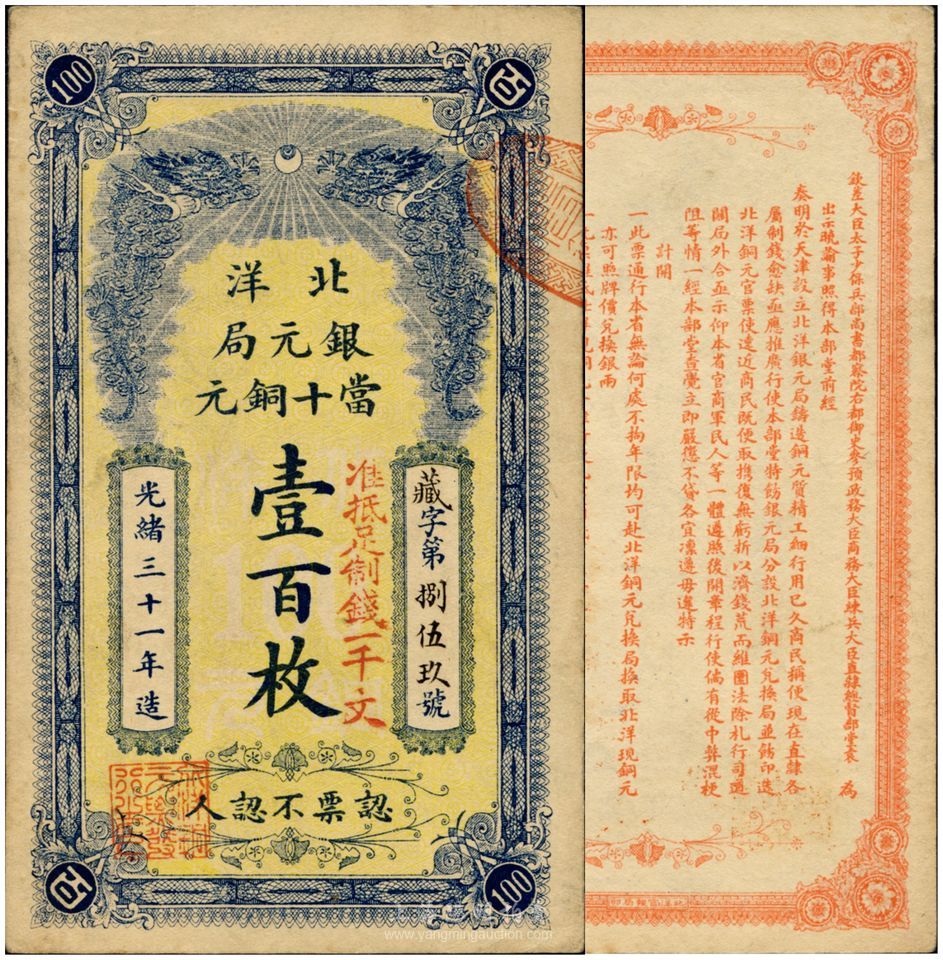 100
百
北洋
銀元局
當十銅元
壹百枚
准抵足制錢一千文
藏字第捌伍玖號
光緒三十一年造
認票不認人
百
100
欽差大臣太子少保兵部尚書都察院右都御史參預政務大臣商務大臣練兵大臣直隸總督部堂袁 為
出示曉諭事照得本部堂前經
奏明於天津設立北洋銀元局鑄造銅元質精工細行用已久商民稱便現在直隸各
屬制錢愈缺亟應推廣行使本部堂特飭銀元局分設北洋銅元兌換局並飭印造
北洋銅元官票使遠近商民既便取攜復無虧折以濟錢荒而維圜法除札行司道
關局外合亟示仰本省官商軍民人等一體遵照後開章程行使倘有從中弊混梗
阻等情一經本部堂查覺立即嚴懲不貸各宜凜遵毋違特示
計開
一此票通行本省無論何處不拘年限均可赴北洋銅元兌換局換取北洋現銅元
亦可照牌價兌換銀兩
www.yangmingauction.com